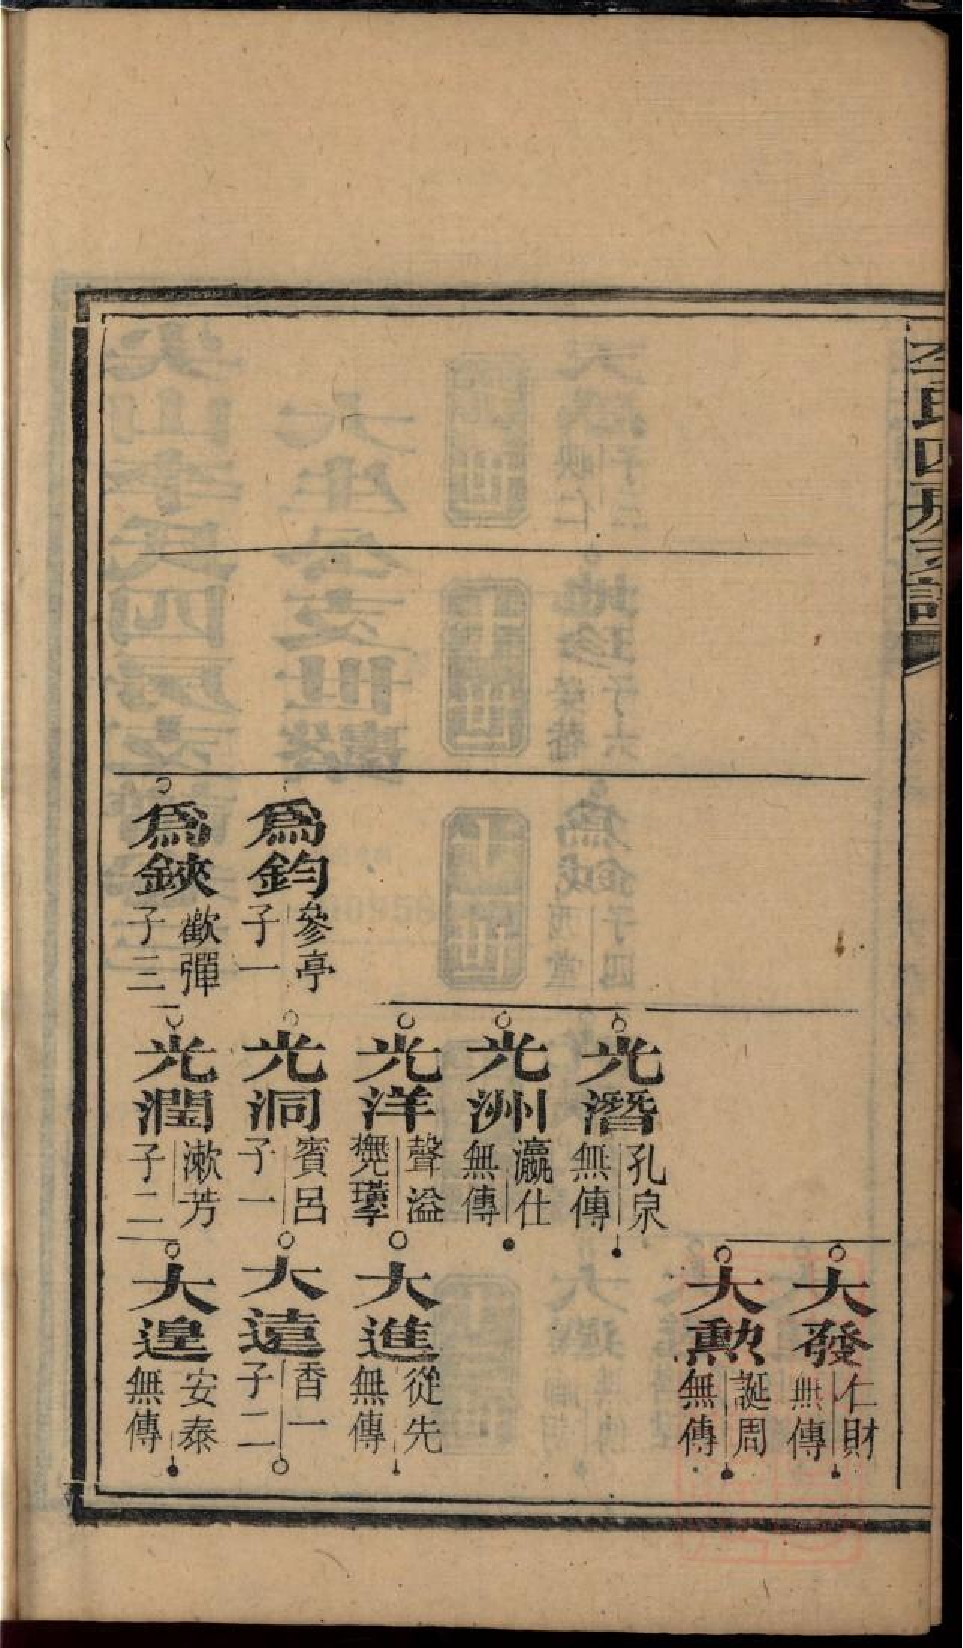 李氏四房支譜
為鈞 參亭 子一
為鋏 歡彈 子三
光潛 孔泉 無傳
光洲 瀛仕 無傳
光洋 聲溢
光洞 賓呂 子一
光潤 漱芳 子二
大發 仁財 無傳
大勲 誕周 無傳
大進 從先 無傳
大遠 香一 子二
大遑 安泰 無傳